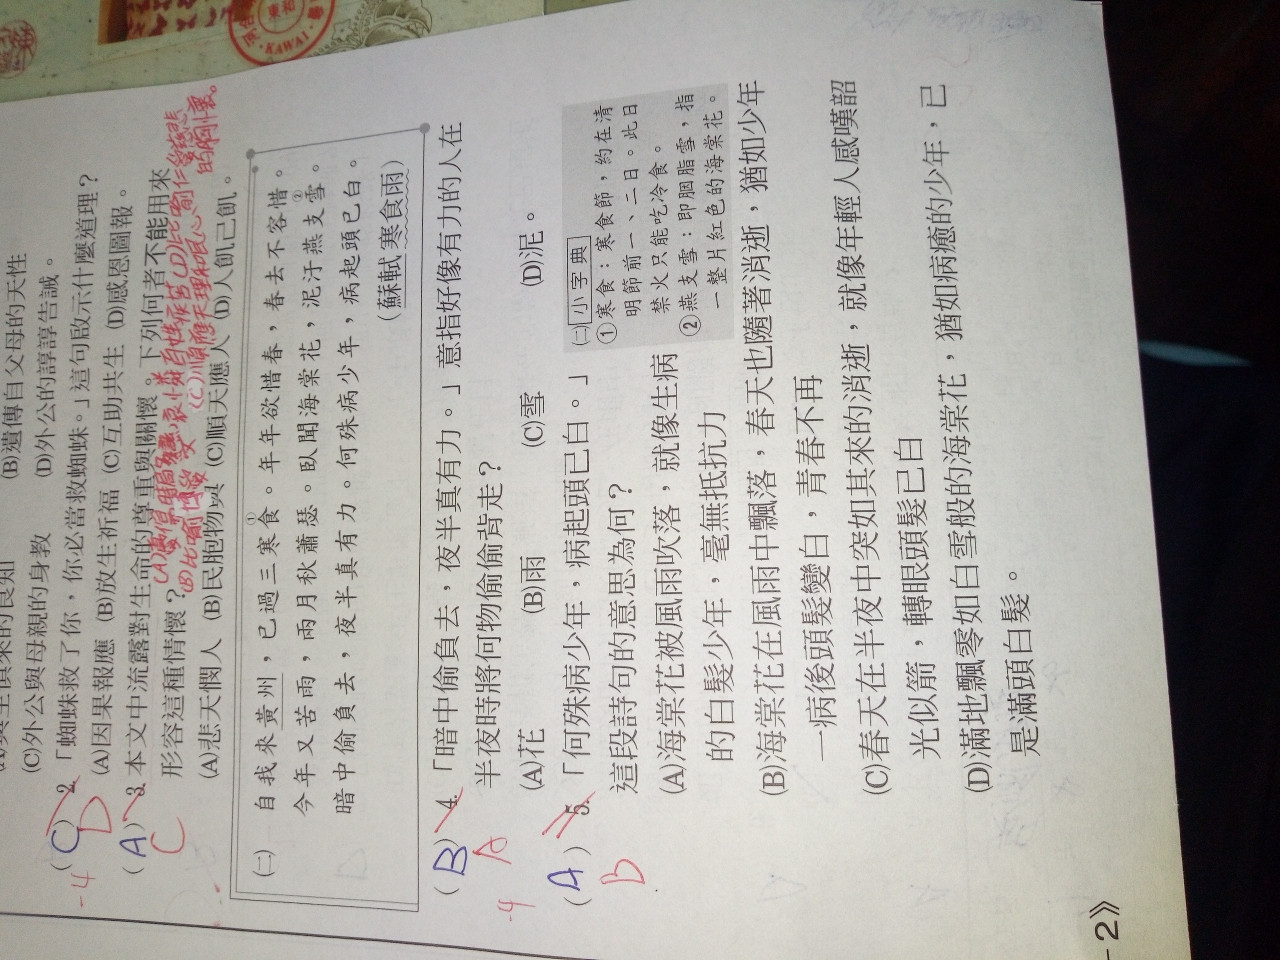 (B)遺傳自父母的天性
(C)外公與母親的身教 (D)外公的諄諄告誡。
(C) 2.「蜘蛛救了你，你必當救蜘蛛。」這句啟示什麼道理？
-4 D
(A)因果報應 (B)放生祈福 (C)互助共生 (D)感恩圖報。
(A) 3.本文中流露對生命的尊重與關懷。下列何者不能用來
C
形容這種情懷？
(A)悲天憫人 (B)民胞物與 (C)順天應人 (D)人飢己飢。
(二) 自我來黃州，已過三寒食①。年年欲惜春，春去不容惜。
今年又苦雨，兩月秋蕭瑟。臥聞海棠花，泥汙燕支雪②。
暗中偷負去，夜半真有力。何殊病少年，病起頭已白。
(蘇軾 寒食雨)
(B) 4.「暗中偷負去，夜半真有力。」意指好像有力的人在
-4 A
半夜時將何物偷偷背走？
(A)花 (B)雨 (C)雪 (D)泥。
(A) 5.「何殊病少年，病起頭已白。」
B
這段詩句的意思為何？
(A)海棠花被風雨吹落，就像生病
的白髮少年，毫無抵抗力
(B)海棠花在風雨中飄落，春天也隨著消逝，猶如少年
一病後頭髮變白，青春不再
(C)春天在半夜中突如其來的消逝，就像年輕人感嘆韶
光似箭，轉眼頭髮已白
(D)滿地飄零如白雪般的海棠花，猶如病癒的少年，已
是滿頭白髮。
(二)小字典
①寒食：寒食節，約在清
明節前一、二日。此日
禁火只能吃冷食。
②燕支雪：即胭脂雪，指
一整片紅色的海棠花。
-2》
KAWAI